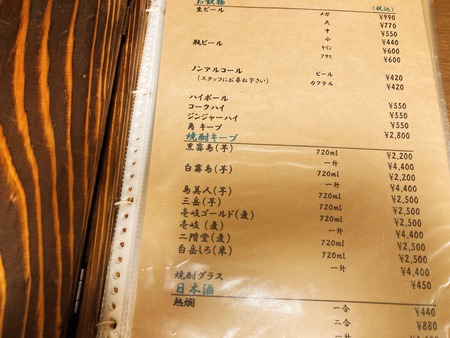 お飲物 (税込)
生ビール メガ ¥990
大 ¥770
中 ¥550
小 ¥440
瓶ビール キリン ¥600
アサヒ ¥600
ノンアルコール ビール ¥420
(スタッフにお尋ね下さい) カクテル ¥420
ハイボール ¥550
コークハイ ¥550
ジンジャーハイ ¥550
角 キープ ¥2,800
焼酎キープ
黒霧島(芋) 720ml ¥2,200
一升 ¥4,400
白霧島(芋) 720ml ¥2,200
一升 ¥4,400
島美人(芋) 720ml ¥2,500
三岳(芋) 720ml ¥2,500
壱岐ゴールド(麦) 720ml ¥2,500
壱岐 (麦) 一升 ¥4,400
二階堂(麦) 720ml ¥2,500
白岳しろ(米) 720ml ¥2,500
一升 ¥4,400
焼酎グラス ¥450
日本酒
熱燗 一合 ¥440
二合 ¥880